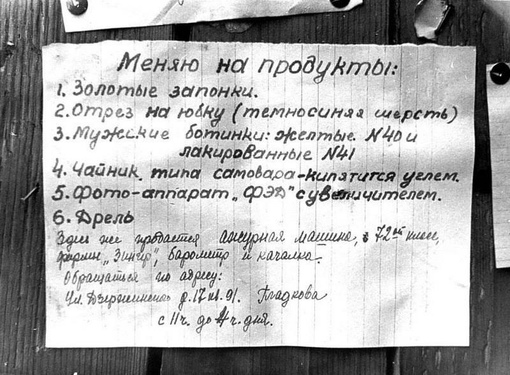 Меняю на продукты:
1. Золотые запонки.
2. Отрез на юбку (темносиняя шерсть)
3. Мужские ботинки: желтые N40 и
лакированные N41
4. Чайник типа самовара-кипятится углем.
5. Фото-аппарат „ФЭД" с увеличителем.
6. Дрель
Здесь же продается ажурная машина, 72ой класс,
фирмы „Зингер", барометр и качалка.
Обращаться по адресу:
Ул. Дзержинского д. 17 кв. 91.
с 11 ч. до 4 ч. дня.